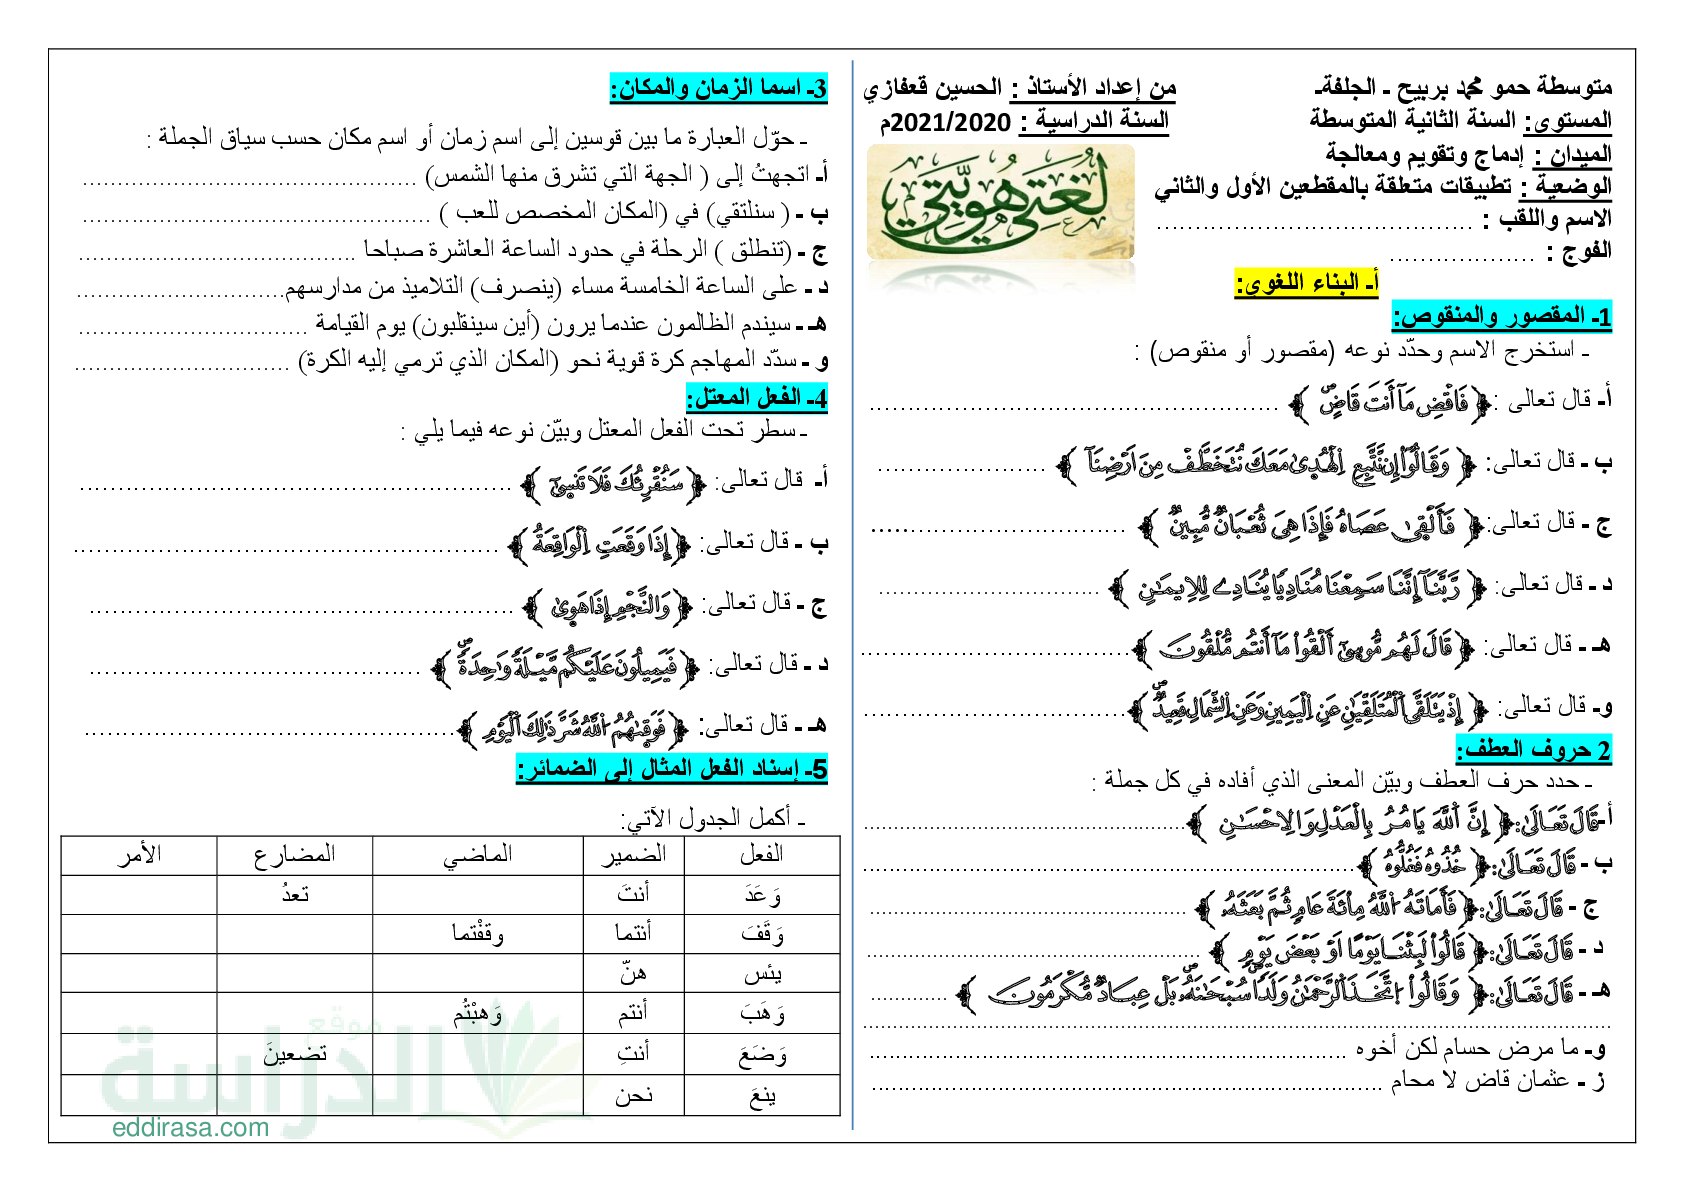 متوسطة حمو محمد بربيح ـ الجلفةـ
من إعداد الأستاذ : الحسين قعفازي
المستوى: السنة الثانية المتوسطة
السنة الدراسية : 2021/2020م
الميدان : إدماج وتقويم ومعالجة
الوضعية : تطبيقات متعلقة بالمقطعين الأول والثاني
الاسم واللقب : ......................................
الفوج : ..................
لغتي هويتي
أـ البناء اللغوي:
1ـ المقصور والمنقوص:
ـ استخرج الاسم وحدّد نوعه (مقصور أو منقوص) :
أـ قال تعالى :﴿ فَاقْضِ مَآ أَنتَ قَاضٍ ﴾ ..................................................
ب ـ قال تعالى: ﴿ وَقَالُوٓاْ إِن نَّتَّبِعِ اِلْهُدَىٰ مَعَكَ نُتَخَطَّفْ مِنَ اَرْضِنَآ ﴾ ......................
ج ـ قال تعالى:﴿ فَأَلْقَىٰ عَصَاهُ فَإِذَا هِىَ ثُعْبَانٌ مُّبِينٌ ﴾ ...............................
د ـ قال تعالى: ﴿ رَّبَّنَآ إِنَّنَا سَمِعْنَا مُنَادِيًا يُنَادِے لِلِايمَٰنِ ﴾ .............................
هـ ـ قال تعالى: ﴿ قَالَ لَهُم مُّوسَىٰٓ أَلْقُواْ مَآ أَنتُم مُّلْقُونَ ﴾..................................
وـ قال تعالى: ﴿ إِذْ يَتَلَقَّى اَلْمُتَلَقِّيَٰنِ عَنِ اِلْيَمِينِ وَعَنِ اِلشِّمَالِ قَعِيدٌ ﴾..................................
2 حروف العطف:
ـ حدد حرف العطف وبيّن المعنى الذي أفاده في كل جملة :
أـ قَالَ تَعَالَىٰ:﴿ إِنَّ اَللَّهَ يَامُرُ بِالْعَدْلِ وَالِاحْسَٰنِ ﴾..........................................
ب ـ قَالَ تَعَالَىٰ:﴿ خُذُوهُ فَغُلُّوهُ ﴾................................................................
ج ـ قَالَ تَعَالَىٰ:﴿ فَأَمَاتَهُ اُللَّهُ مِاْئَةَ عَامٍ ثُمَّ بَعَثَهُۥ ﴾ ..........................................
د ـ قَالَ تَعَالَىٰ:﴿ قَالُواْ لَبِثْنَا يَوْمًا اَوْ بَعْضَ يَوْمٍ ﴾...........................................
هـ ـ قَالَ تَعَالَىٰ:﴿ وَقَالُواْ اُتَّخَذَ اَلرَّحْمَٰنُ وَلَدًا سُبْحَٰنَهُۥ بَلْ عِبَادٌ مُّكْرَمُونَ ﴾ ..........
................................................................................................
وـ ما مرض حسام لكن أخوه ..............................................................
ز ـ عثمان قاض لا محام ..................................................................
3ـ اسما الزمان والمكان:
ـ حوّل العبارة ما بين قوسين إلى اسم زمان أو اسم مكان حسب سياق الجملة :
أـ اتجهتُ إلى ( الجهة التي تشرق منها الشمس) ................................................
ب ـ ( سنلتقي) في (المكان المخصص للعب ) ..................................................
ج ـ (تنطلق ) الرحلة في حدود الساعة العاشرة صباحا ........................................
د ـ على الساعة الخامسة مساء (ينصرف) التلاميذ من مدارسهم..............................
هـ ـ سيندم الظالمون عندما يرون (أين سينقلبون) يوم القيامة .................................
و ـ سدّد المهاجم كرة قوية نحو (المكان الذي ترمي إليه الكرة) ...............................
4ـ الفعل المعتل:
ـ سطر تحت الفعل المعتل وبيّن نوعه فيما يلي :
أـ قال تعالى: ﴿ سَنُقْرِئُكَ فَلَا تَنسَىٰٓ ﴾ ........................................................
ب ـ قال تعالى: ﴿ إِذَا وَقَعَتِ اِلْوَاقِعَةُ ﴾ ......................................................
ج ـ قال تعالى: ﴿ وَالنَّجْمِ إِذَا هَوَىٰ ﴾ ......................................................
د ـ قال تعالى: ﴿ فَيَمِيلُونَ عَلَيْكُم مَّيْلَةً وَٰحِدَةً ﴾ ...........................................
هـ ـ قال تعالى: ﴿ فَوَقَىٰهُمُ اُللَّهُ شَرَّ ذَٰلِكَ اَلْيَوْمِ ﴾................................................
5ـ إسناد الفعل المثال إلى الضمائر:
ـ أكمل الجدول الآتي:
الفعل الضمير الماضي المضارع الأمر
وَعَدَ أنتَ تعدُ
وَقَفَ أنتما وقفْتما
يئس هنّ
وَهَبَ أنتم وَهبْتُم
وَضَعَ أنتِ تضعينَ
ينعَ نحن
موقع
الدراسة
eddirasa.com